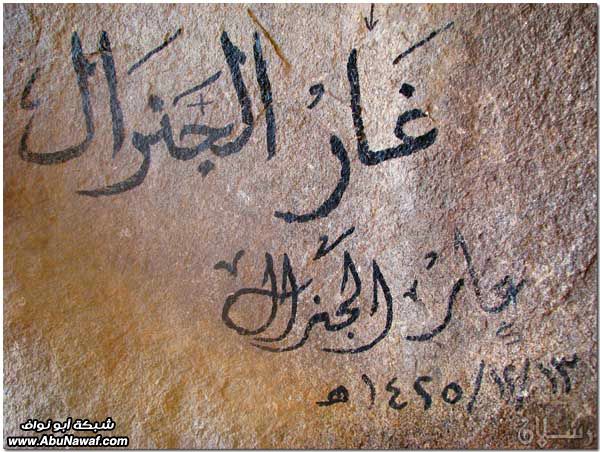 غَارُ الجَنوَال
غار الجنرال
١٤٢٥/١٢/١٣ هـ
شبكة أبو نواف
www.AbuNawaf.com